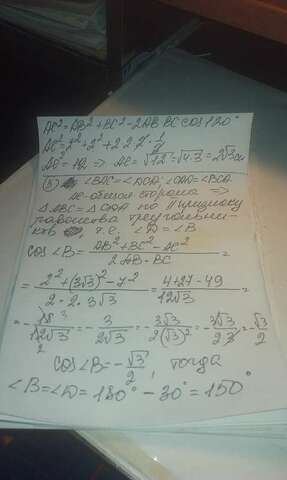 AC² = AB² + BC² - 2AB·BC cos 120°
AC² = 2² + 2² + 2·2·2·1/2
AC² = 12 → AC = √12 = √4·3 = 2√3 см
∠BAC = ∠DCA; ∠CAD = ∠BCA
AC - общая сторона ⇒
△ABC = △CDA по II признаку
равенства треугольни-
ков, т.е. ∠D = ∠B
cos∠B = (AB² + BC² - AC²)/(2AB·BC) =
= (2² + (3√3)² - 7²)/(2·2·3√3) = (4 + 27 - 49)/(12√3) =
= -18/(12√3) = -3/(2√3) = -3√3/(2(√3)²) = -3√3/(2·3) = -√3/2
cos∠B = -√3/2, тогда
∠B = ∠D = 180° - 30° = 150°